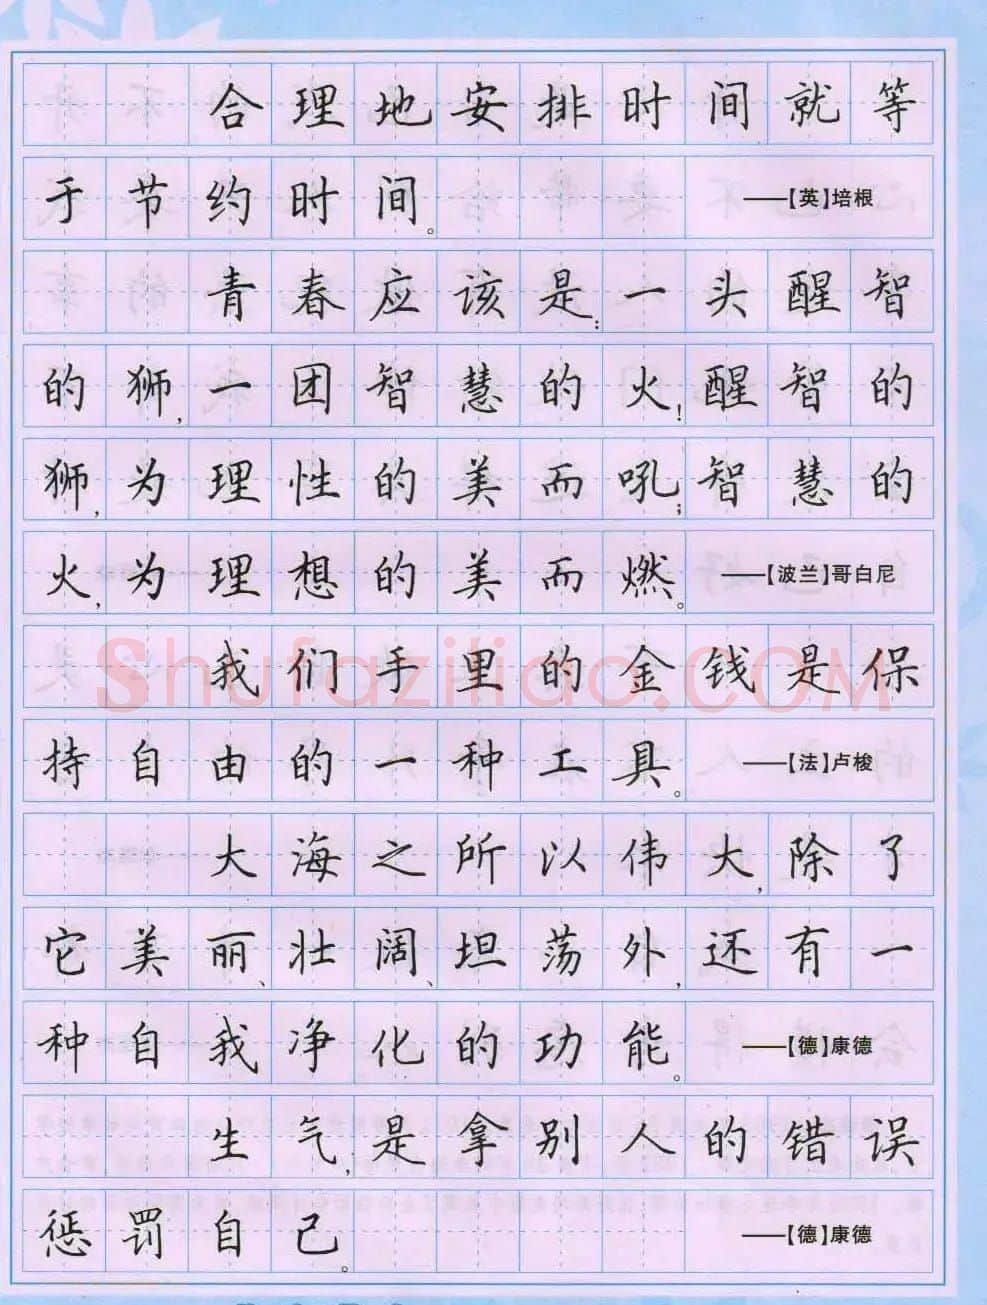 合理地安排时间,就等
于节约时间。——【英】培根
青春应该是:一头醒智
的狮,一团智慧的火!醒智的
狮,为理性的美而吼;智慧的
火,为理想的美而燃。——【波兰】哥白尼
我们手里的金钱是保
持自由的一种工具。——【法】卢梭
大海之所以伟大,除了
它美丽、壮阔、坦荡外,还有一
种自我净化的功能。——【德】康德
生气,是拿别人的错误
惩罚自己。——【德】康德
Shufaziliao.COM